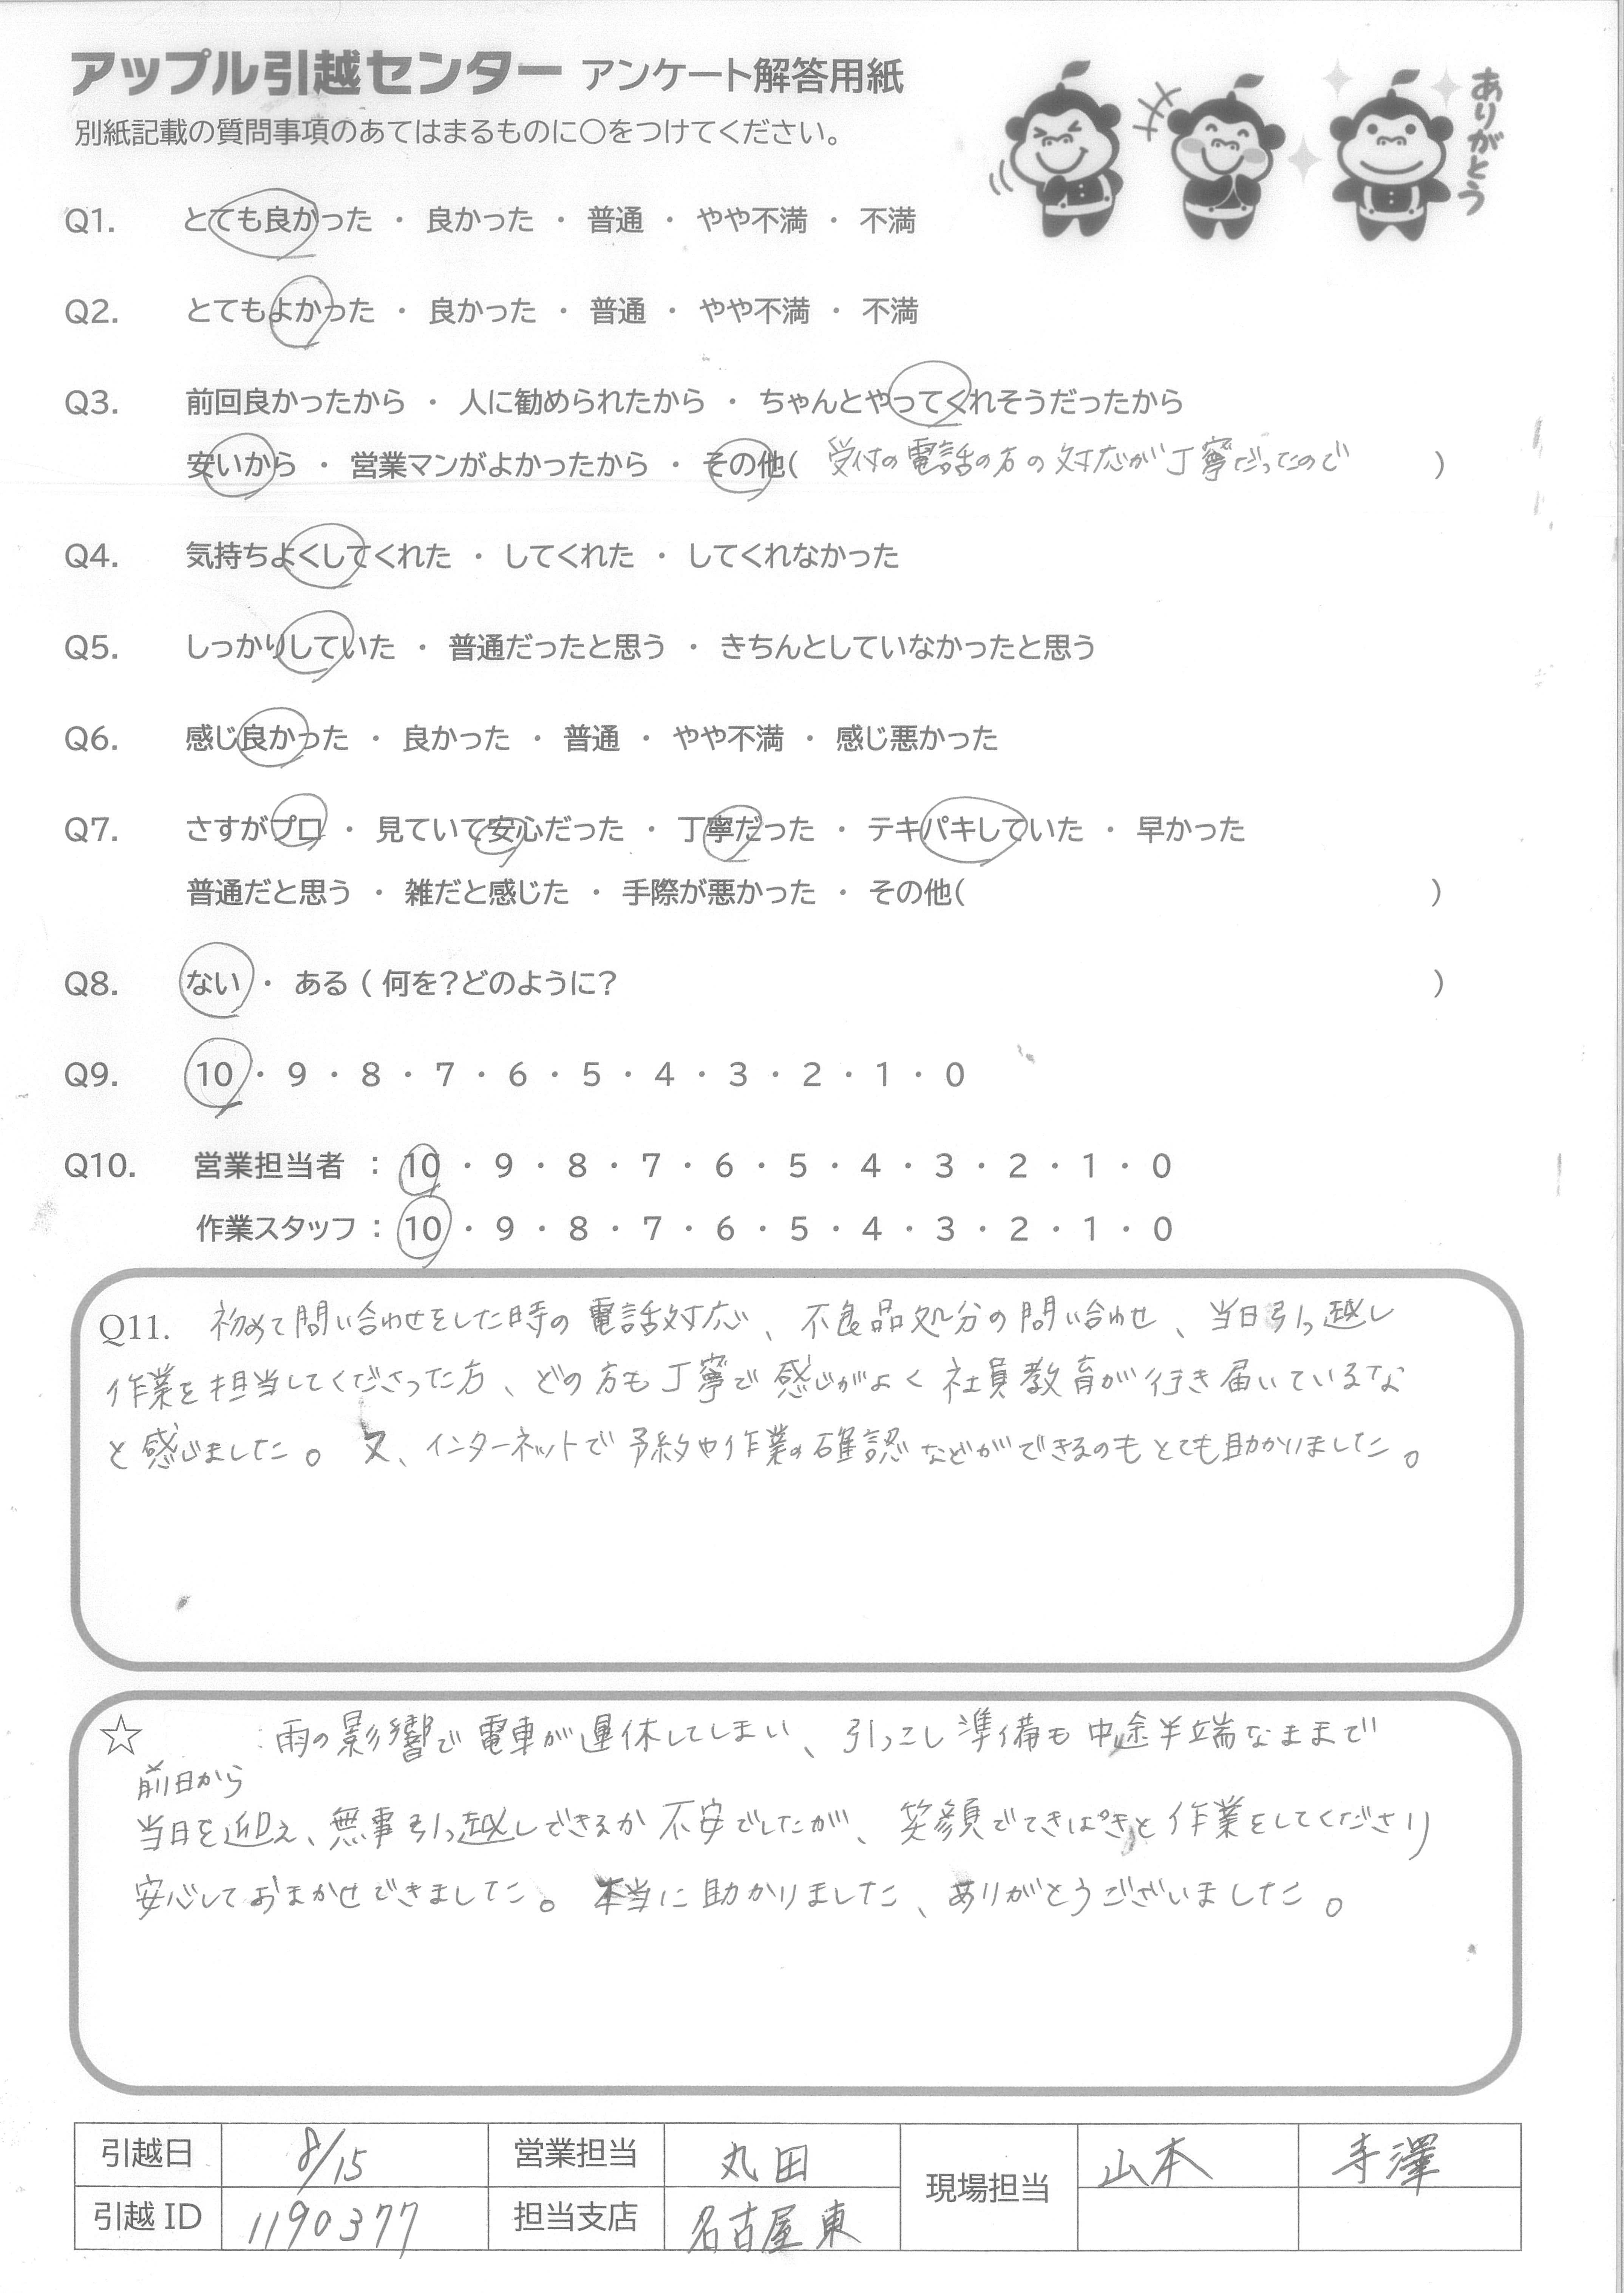 アップル引越センター アンケート解答用紙
別紙記載の質問事項のあてはまるものに○をつけてください。
ありがとう
Q1. とても良かった ・ 良かった ・ 普通 ・ やや不満 ・ 不満
Q2. とてもよかった ・ 良かった ・ 普通 ・ やや不満 ・ 不満
Q3. 前回良かったから ・ 人に勧められたから ・ ちゃんとやってくれそうだったから
安いから ・ 営業マンがよかったから ・ その他( 受付の電話の方の対応が丁寧だったので )
Q4. 気持ちよくしてくれた ・ してくれた ・ してくれなかった
Q5. しっかりしていた ・ 普通だったと思う ・ きちんとしていなかったと思う
Q6. 感じ良かった ・ 良かった ・ 普通 ・ やや不満 ・ 感じ悪かった
Q7. さすがプロ ・ 見ていて安心だった ・ 丁寧だった ・ テキパキしていた ・ 早かった
普通だと思う ・ 雑だと感じた ・ 手際が悪かった ・ その他( )
Q8. ない ・ ある ( 何を?どのように? )
Q9. 10 ・ 9 ・ 8 ・ 7 ・ 6 ・ 5 ・ 4 ・ 3 ・ 2 ・ 1 ・ 0
Q10. 営業担当者 : 10 ・ 9 ・ 8 ・ 7 ・ 6 ・ 5 ・ 4 ・ 3 ・ 2 ・ 1 ・ 0
作業スタッフ : 10 ・ 9 ・ 8 ・ 7 ・ 6 ・ 5 ・ 4 ・ 3 ・ 2 ・ 1 ・ 0
Q11. 初めて問い合わせをした時の電話対応、不良品処分の問い合わせ、当日引っ越し
作業を担当してくださった方、どの方も丁寧で感じがよく社員教育が行き届いているな
と感じました。又、インターネットで予約や作業の確認などができるのもとても助かりました。
☆ 雨の影響で電車が運休してしまい、引っこし準備も中途半端なままで
前日から
当日を迎え、無事引っ越しできるか不安でしたが、笑顔でてきぱきと作業をしてくださり
安心しておまかせできました。本当に助かりました、ありがとうございました。
引越日 8/15 営業担当 丸田 現場担当 山本 寺澤
引越ID 1190377 担当支店 名古屋東